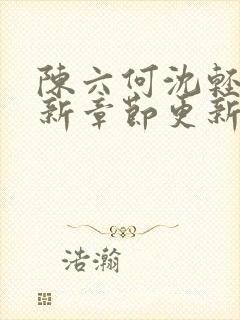 陳六何沈輕
新章節更新
浩瀚